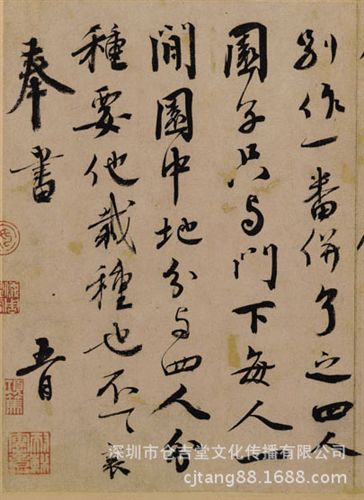 別作一番併了之四人
園子只与門下每人
閒園中地分与四人分
種要他栽種也不一
奉書
五月
深圳市仓吉堂文化传播有限公司
cjtang88.1688.com